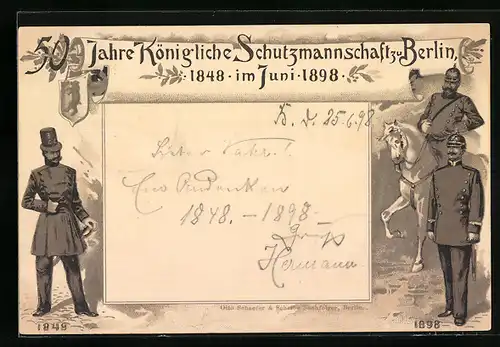 50 Jahre Königliche Schutzmannschaft zu Berlin,
1848 · im Juni · 1898
B. d. 25.6.98
Lieber Vater!
Ein Andenken
1848. – 1898.
Gruß
Hermann
Otto Schaefer & Scheibe Nachfolger, Berlin.
1848
1898